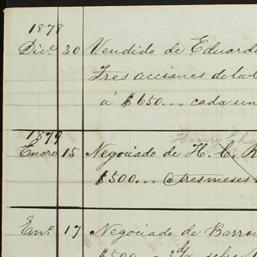 1878
Dic.e 30 Vendido de Eduardo
Tres acciones de la
á $650... cada un
1879
Enero 15 Negociado de H. C. R
$500... @ tres meses
En.o 17 Negociado de Barro
$500